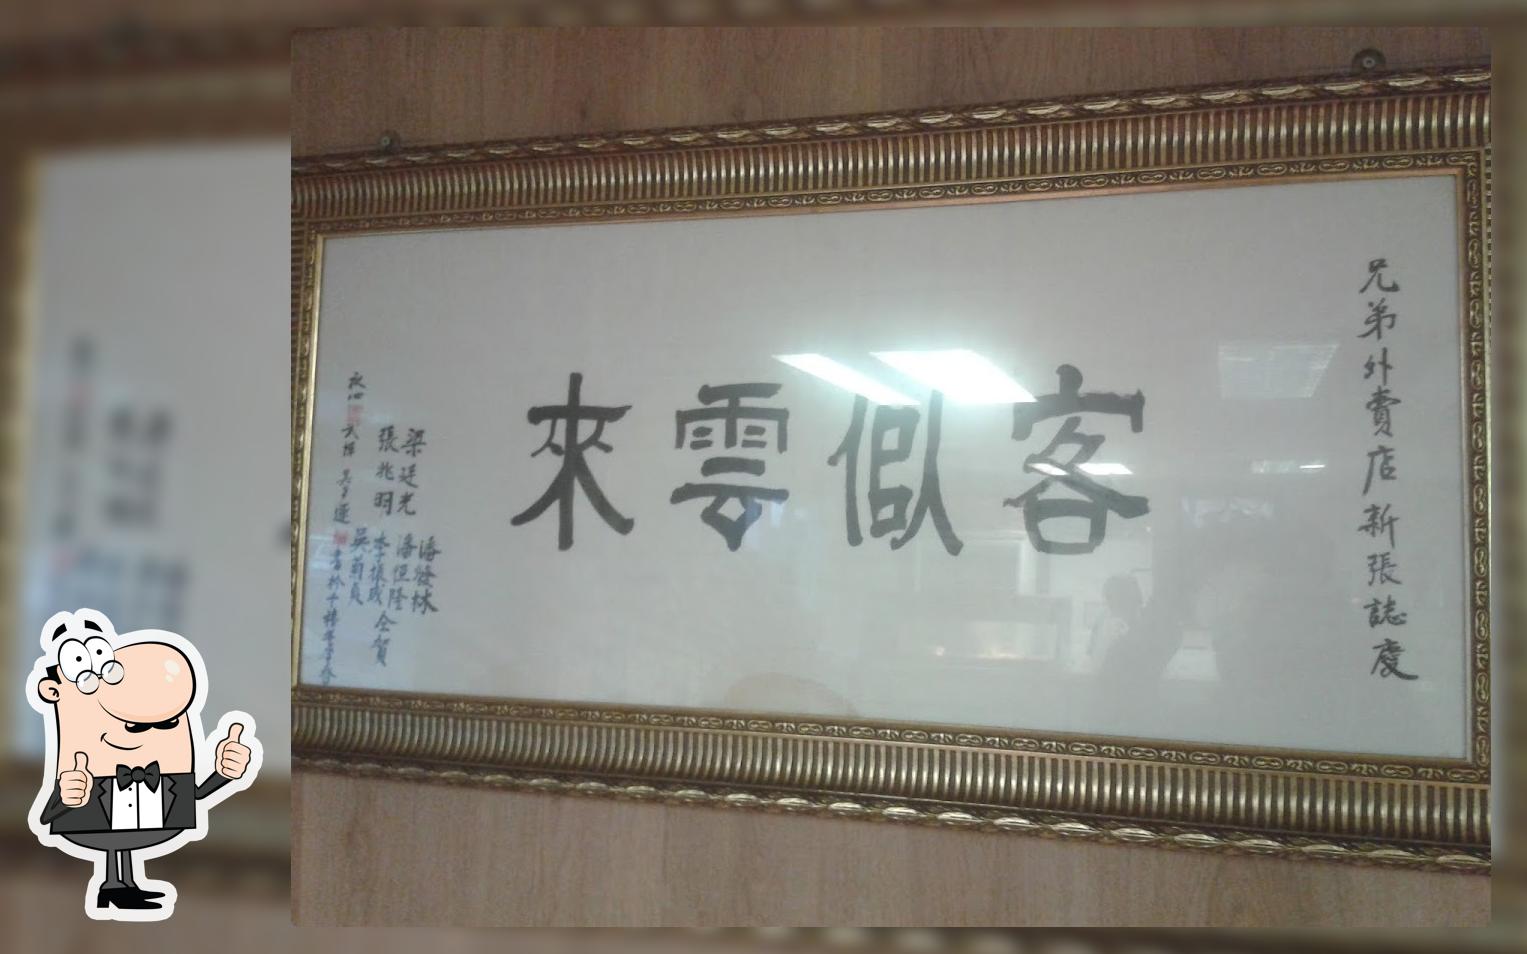 兄弟外賣店新張誌慶
客似雲來
潘發林
潘恒隆
梁廷光
李振成仝賀
張兆明
吳菊貞